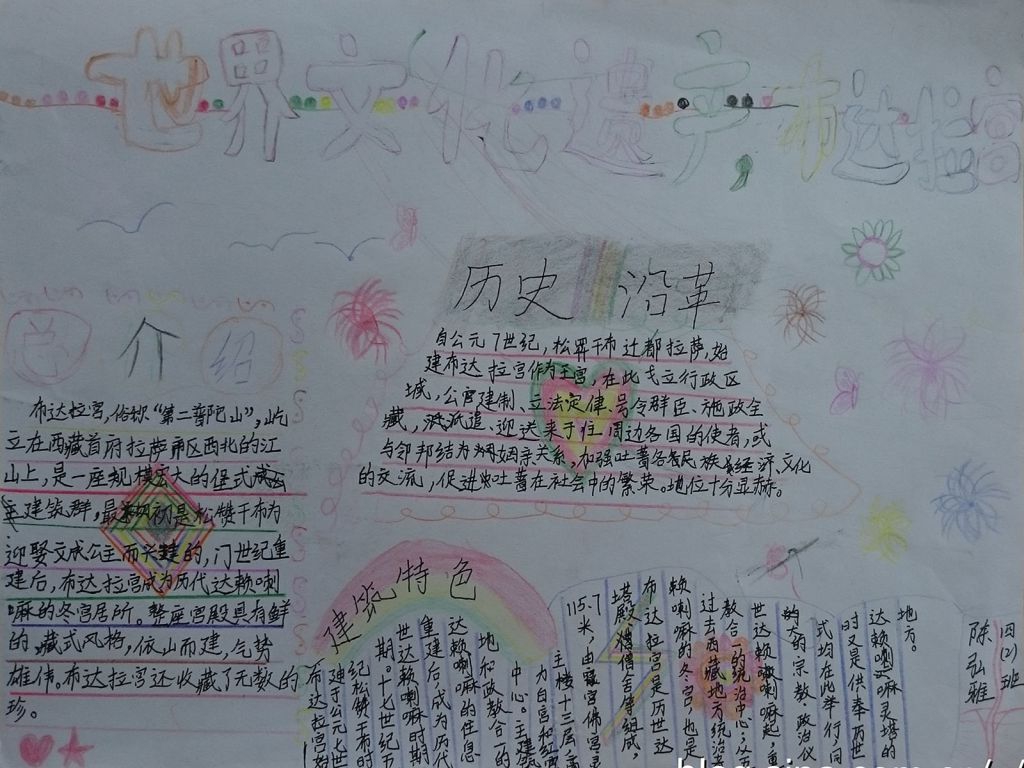 世界文化遗产,布达拉宫
总介绍
布达拉宫,俗称“第二普陀山”,屹
立在西藏首府拉萨市区西北的红
山上,是一座规模宏大的堡式
建筑群,最初是松赞干布为
迎娶文成公主而兴建的,
建后,布达拉宫成为历代达赖喇
嘛的冬宫居所。整座宫殿具有鲜
的藏式风格,依山而建,气势
雄伟。布达拉宫还收藏了无数的
珍。
历史沿革
自公元7世纪,松干布迁都拉萨,始
建布达拉宫作为王宫,在此
立行政区
域,公宫建制、立法定律、号令群臣、施政全
藏,派遣、迎送来于往周边各国的使者,或
与邻邦结为姻亲关系,加强吐蕃各民族经济、文化
的交流,促进吐蕃在社会中的繁荣。地位十分显赫。
建筑特色
布达拉宫始
建于公元七世
纪松赞干布时
期。十七世纪五
世达赖喇嘛时期
重建后,成为历代
达赖喇嘛的住息
地和政教合一的
中心。主建筑
为白宫和红
主楼十三层,高
115.7米,由寝宫佛宫灵
塔殿僧舍等组成,
布达拉宫是历世达
赖喇嘛的冬宫,也是
过去西藏地方统治
教合一的统治中心,从五
世达赖喇嘛起,重
大的宗教、政治仪
式均在此举行,同
时又是供奉历世
达赖喇嘛灵塔的
地方。
四(2)班
陈弘雅